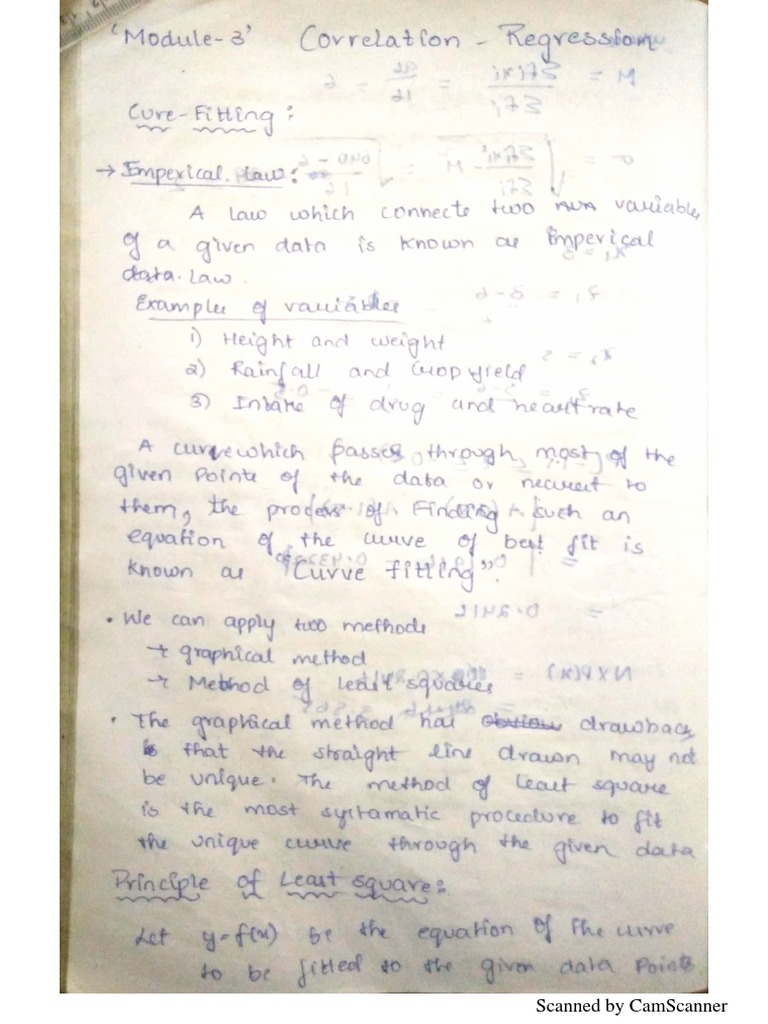 'Module-3' Correlation - Regression
Cure-Fitting :
→ Emperical law :
A law which connects two variables
of a given data is known as Emperical
data. Law.
Examples of variables
1) Height and weight
2) Rainfall and Crop yield
3) Intake of drug and heart rate
A curve which passes through most of the
given points of the data or nearest to
them, the process of Finding such an
equation of the curve of best fit is
known as "Curve fitting".
• We can apply two methods
→ graphical method
→ Method of least squares
• The graphical method has obvious drawback
is that the straight line drawn may not
be unique. The method of least square
is the most systamatic procedure to fit
the unique curve through the given data
Principle of Least square:
Let y=f(x) be the equation of the curve
to be fitted to the given data points
Scanned by CamScanner